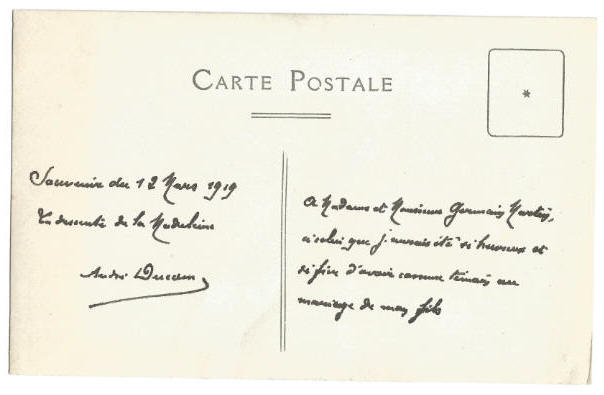 CARTE POSTALE
*
Souvenir du 12 Mars 1919
La descente de la Madeleine
André
A Madame et Monsieur Germain
à celui que j'aurais été si heureux et
si fier d'avoir comme témoin au
mariage de mon fils